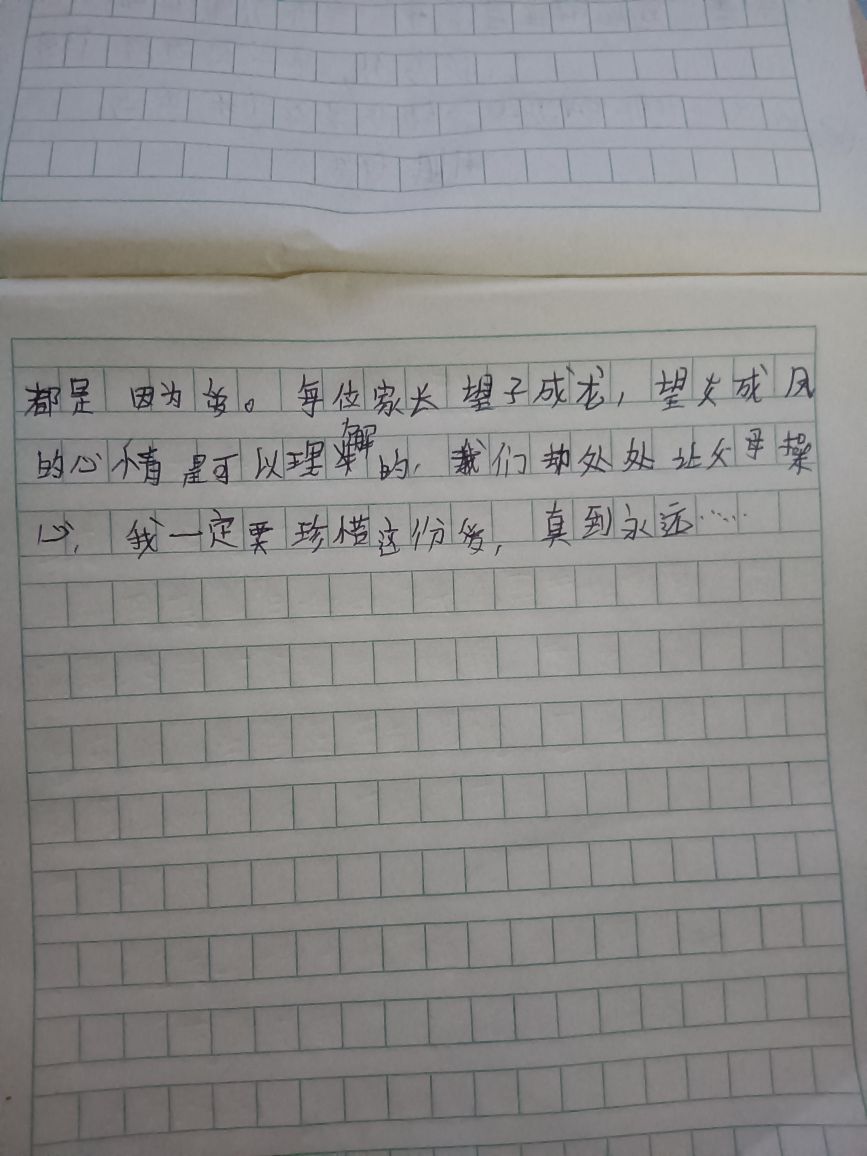 都是因为爱。每位家长望子成龙，望女成凤
的心情是可以理解的，我们却处处让父母操
心，我一定要珍惜这份爱，真到永远……